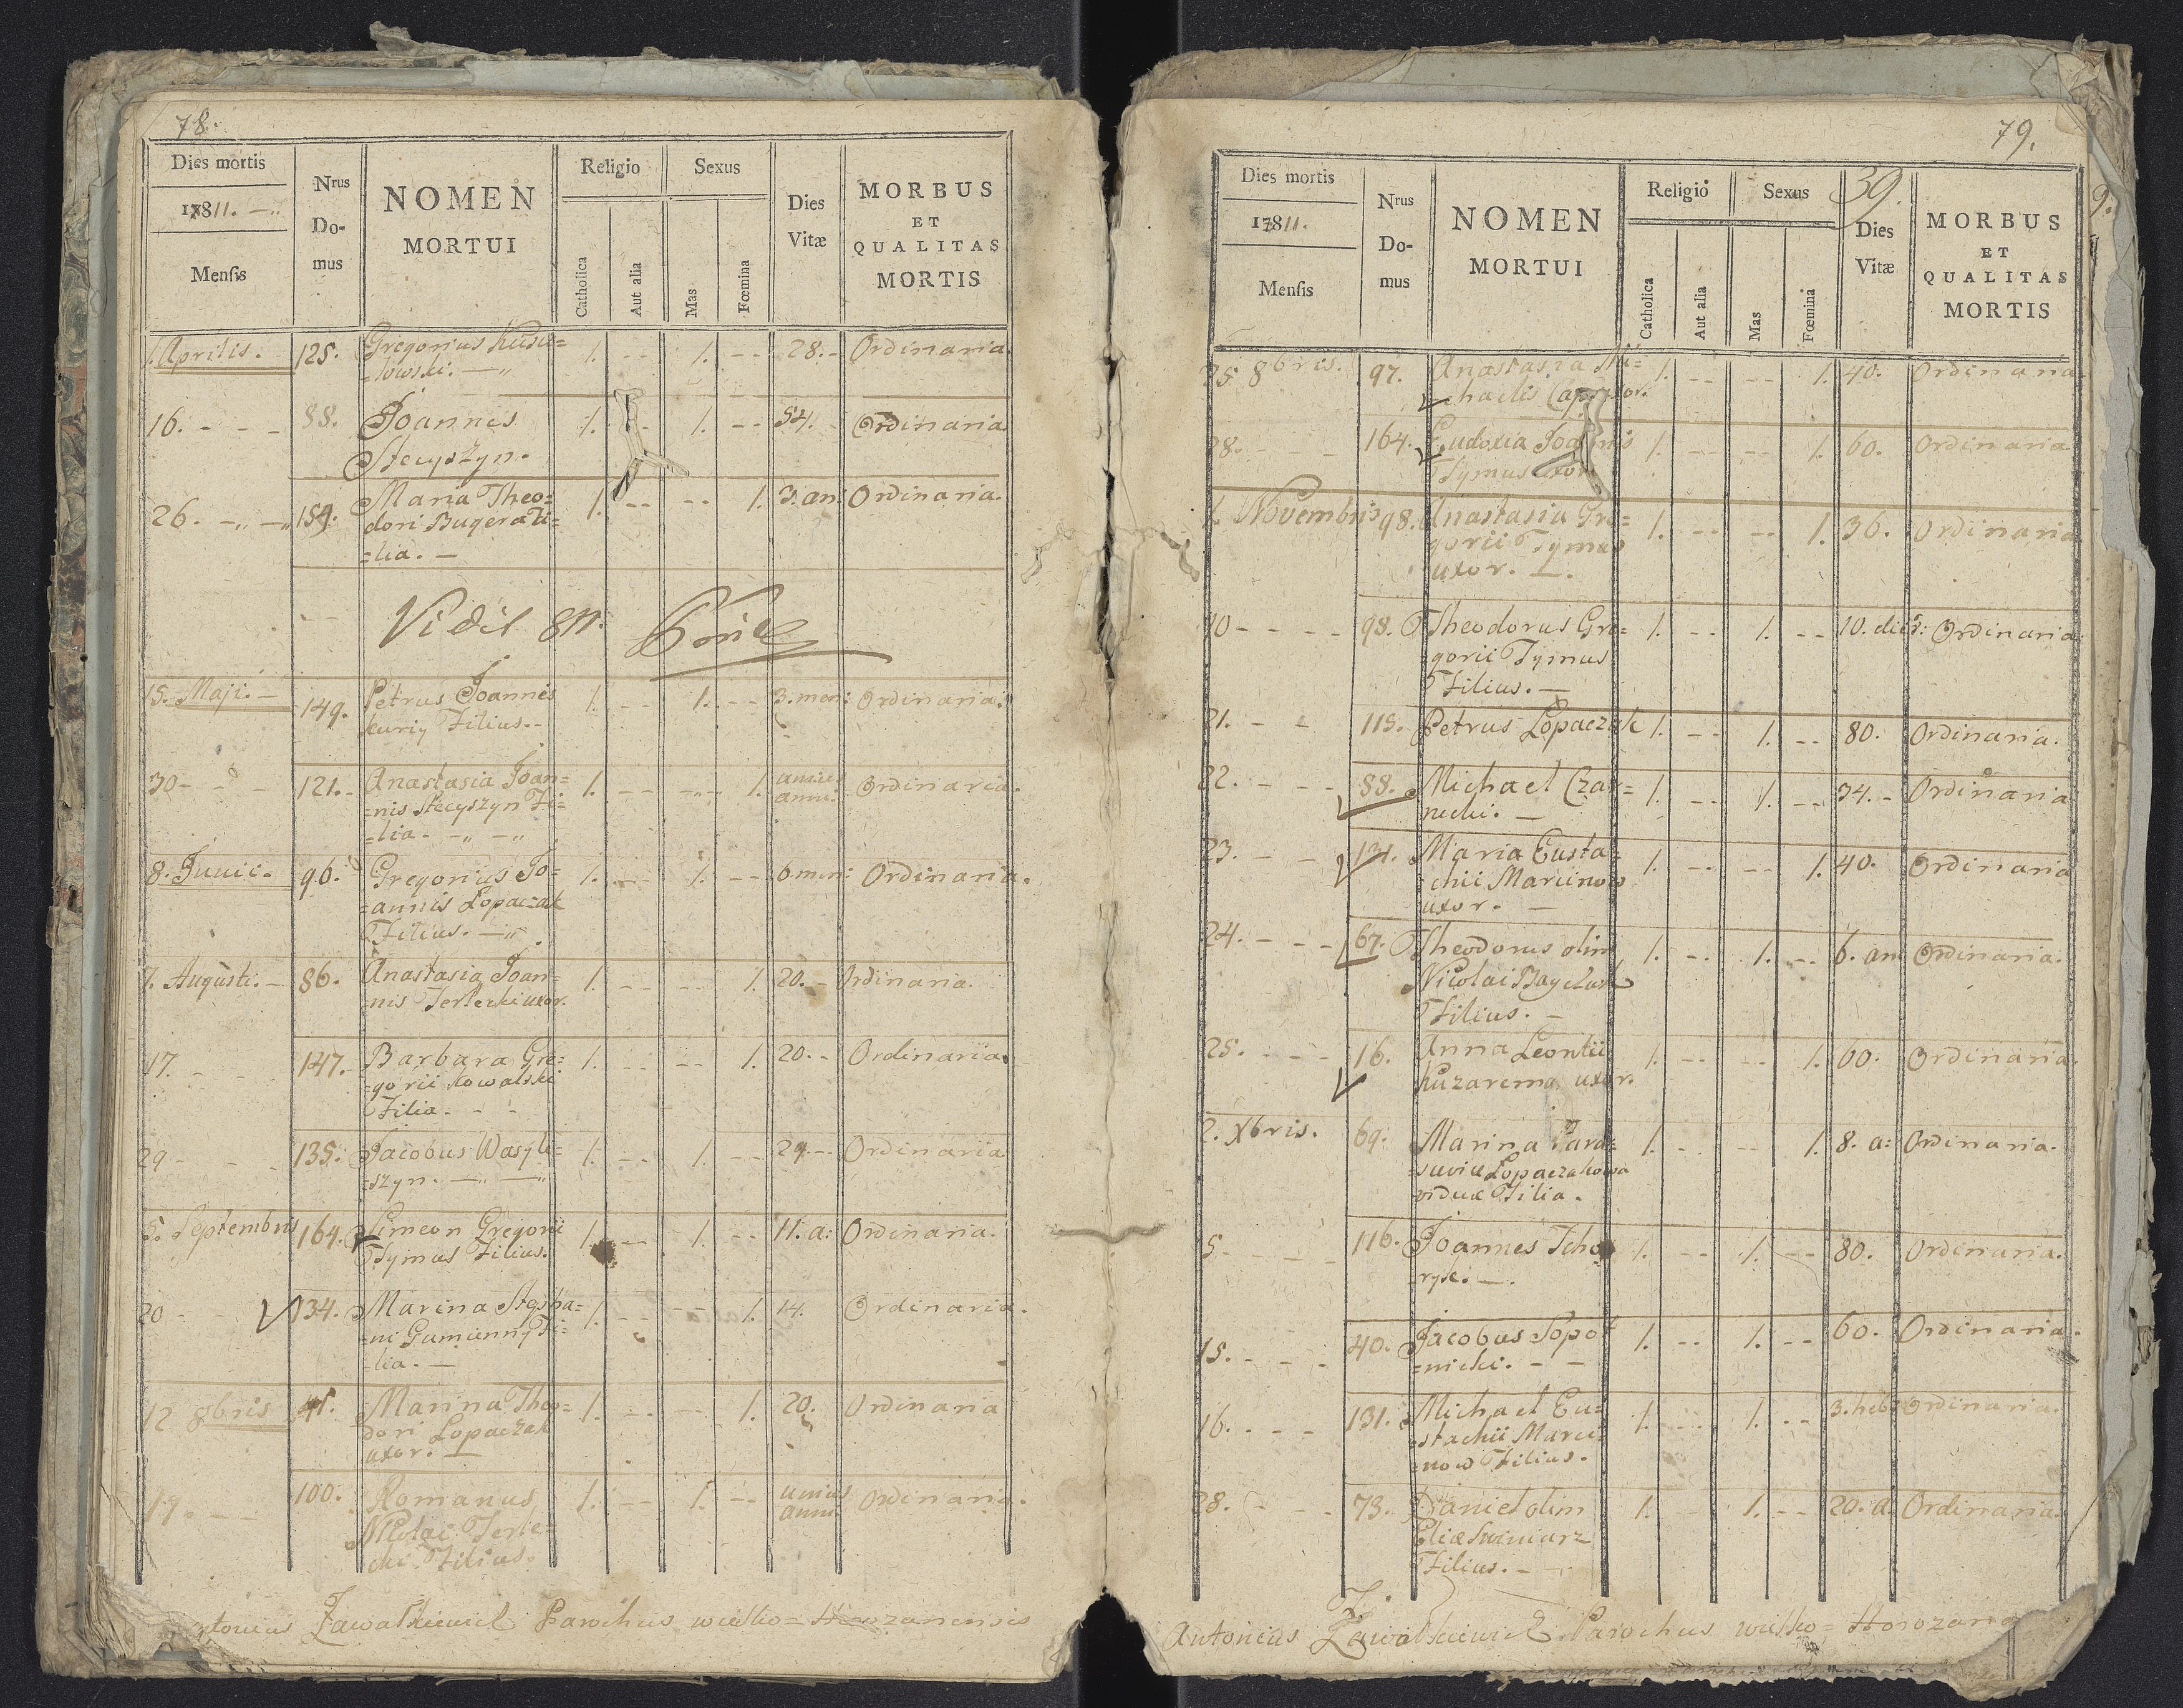 78.
Dies mortis
17811. —„
Mensis
Nrus
Do-
mus
NOMEN
MORTUI
Religio
Catholica
Aut alia
Sexus
Mas
Fœmina
Dies
Vitæ
MORBUS
ET
QUALITAS
MORTIS
1. Aprilis. 125. Gregorius Kusu= 1. -- 1. -- 28.- Ordinaria.
=lowski. —„
16. - - - 88. Joannes 1. -- 1. -- 54. Ordinaria
Stecyszyn.
26. -„ —„ 159. Maria Theo= 1. -- -- 1. 3. an: Ordinaria.
dori Bugera Fi=
=lia. —
Vidit 811.
15. Maji. — 149. Petrus Joannis 1. -- 1. -- 3. men: Ordinaria.
Kuriy Filius.-
30 - - - 121. Anastasia Joan= 1. -- -- 1. unius Ordinaria.
=nis Stecyszyn Fi= anni
=lia. -„ -„
8. Junii. 96. Gregorius Jo= 1. -- 1. -- 6. men: Ordinaria.
=annis Lopaczak
Filius. —„
7. Augusti. - 86. Anastasia Joan= 1. -- -- 1. 20. - Ordinaria.
=nis Terlecki uxor.
17. - - 147. Barbara Gre= 1. -- -- 1. 20. - Ordinaria.
=gorii Kowalski
Filia. - -
29 - - - 135. Jacobus Wasyli= 1. -- 1. -- 29. - Ordinaria
szyn. —„ —„
5. Septembris 164. Simeon Gregorii 1. -- 1. -- 11. a: Ordinaria.
Tymus Filius.
20 - - 134. Marina Stepha= 1. -- -- 1. 14. Ordinaria.
=ni Gumienny Fi=
=lia. —
12 8bris 41. Marina Theo= 1. -- -- 1. 20. Ordinaria
dori Lopaczak
uxor. —
19. - - 100. Romanus 1. -- 1. -- unius Ordinaria.
Nicolai Terle= anni
cki Filius.
Antonius Zawalkiewicz Parochus wielko=Horozanensis
79.
39.
Dies mortis
17811.
Mensis
Nrus
Do-
mus
NOMEN
MORTUI
Religio
Catholica
Aut alia
Sexus
Mas
Fœmina
Dies
Vitæ
MORBUS
ET
QUALITAS
MORTIS
25 8bris. 97. Anastasia Mi= 1. -- -- 1. 40. Ordinaria
chaelis Cap uxor.
28. - - - 164. Eudoxia Joannis 1. -- -- 1. 60. Ordinaria
Tymus uxor
1. Novembris 98. Anastasia Gre= 1. -- -- 1. 36. Ordinaria
gorii Tymus
uxor. —.
10 - - - - 98. Theodorus Gre= 1. -- 1. -- 10. dies: Ordinaria.
gorii Tymus
Filius. —
21. - - 115. Petrus Lopaczak 1. -- 1. -- 80. Ordinaria.
22. - - - 88. Michael Czar= 1. -- 1. -- 34. - Ordinaria
necki. —
23. - - 131. Maria Eusta= 1. -- -- 1. 40. Ordinaria
chii Marcinow
uxor. —
24. - - - 67. Theodorus olim 1. -- 1. -- 6. an Ordinaria.
Nicolai
Filius. —
25. - - - 16. Anna Leontii 1. -- -- 1. 60. Ordinaria.
Kuzarema uxor.
2. Xbris. 69. Marina Para= 1. -- -- 1. 8. a: Ordinaria.
=seviæ Lopaczakowa
viduæ Filia.
5. - - - 116. Joannes Tcho 1. -- 1. -- 80. Ordinaria.
ryk. —.
15. - - - 40. Jacobus Sopot 1. -- 1. -- 60. Ordinaria.
=nicki. - -
16. - - - 131. Michael Eu= 1. -- 1. -- 3. heb: Ordinaria.
stachii Marci=
now Filius.
28. - - - 73. Daniel olim 1. -- 1. -- 20. a Ordinaria.
Eliæ Swiniarz
Filius. —
Antonius Zawalkiewicz Parochus wielko=Horozana